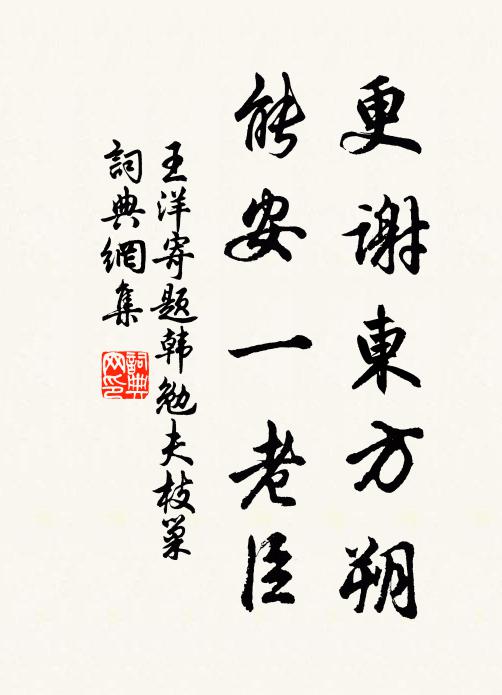 更谢東方朔
能安一老臣
王洋寄题韩勉夫枝巢
詞典網集
詞典網印